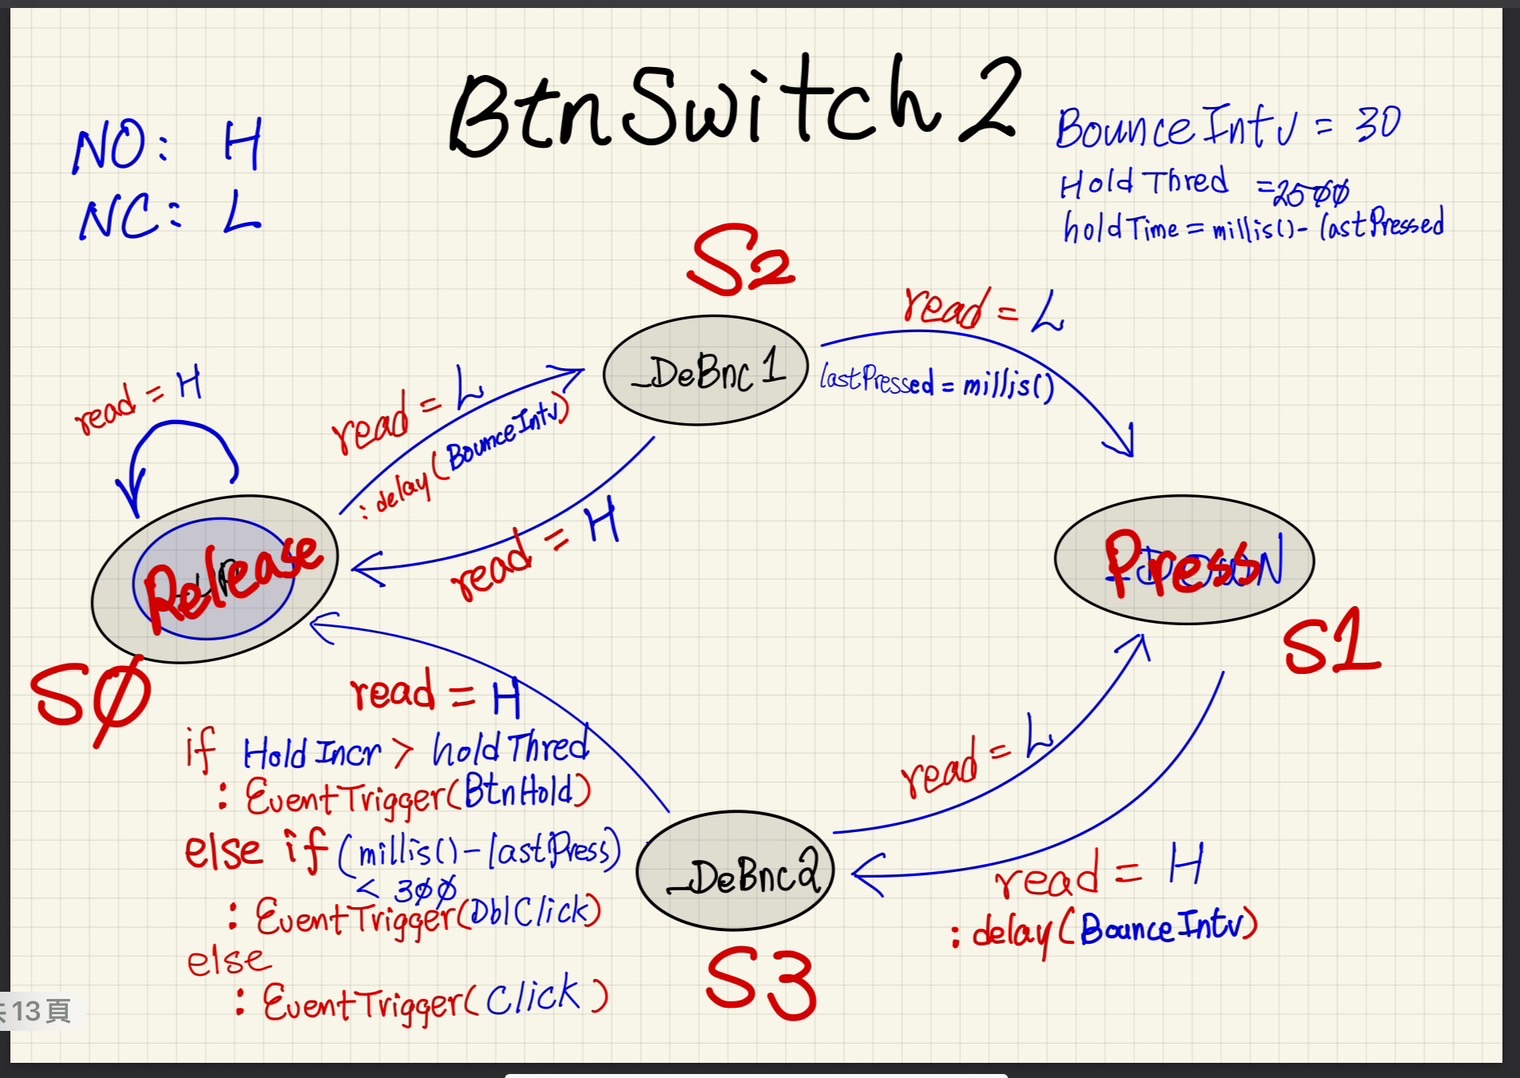 BtnSwitch 2
NO: H
NC: L
BounceIntv = 30
HoldThred = 2500
holdTime = millis() - lastPressed
S2
_DeBnc1
read = L
lastPressed = millis()
read = H
read = L
: delay(BounceIntv)
read = H
Release
S0
Press
S1
read = H
if HoldIncr > holdThred
: EventTrigger(BtnHold)
else if (millis() - lastPress)
< 300
: EventTrigger(DblClick)
else
: EventTrigger(Click)
_DeBnc2
S3
read = L
read = H
: delay(BounceIntv)
13頁